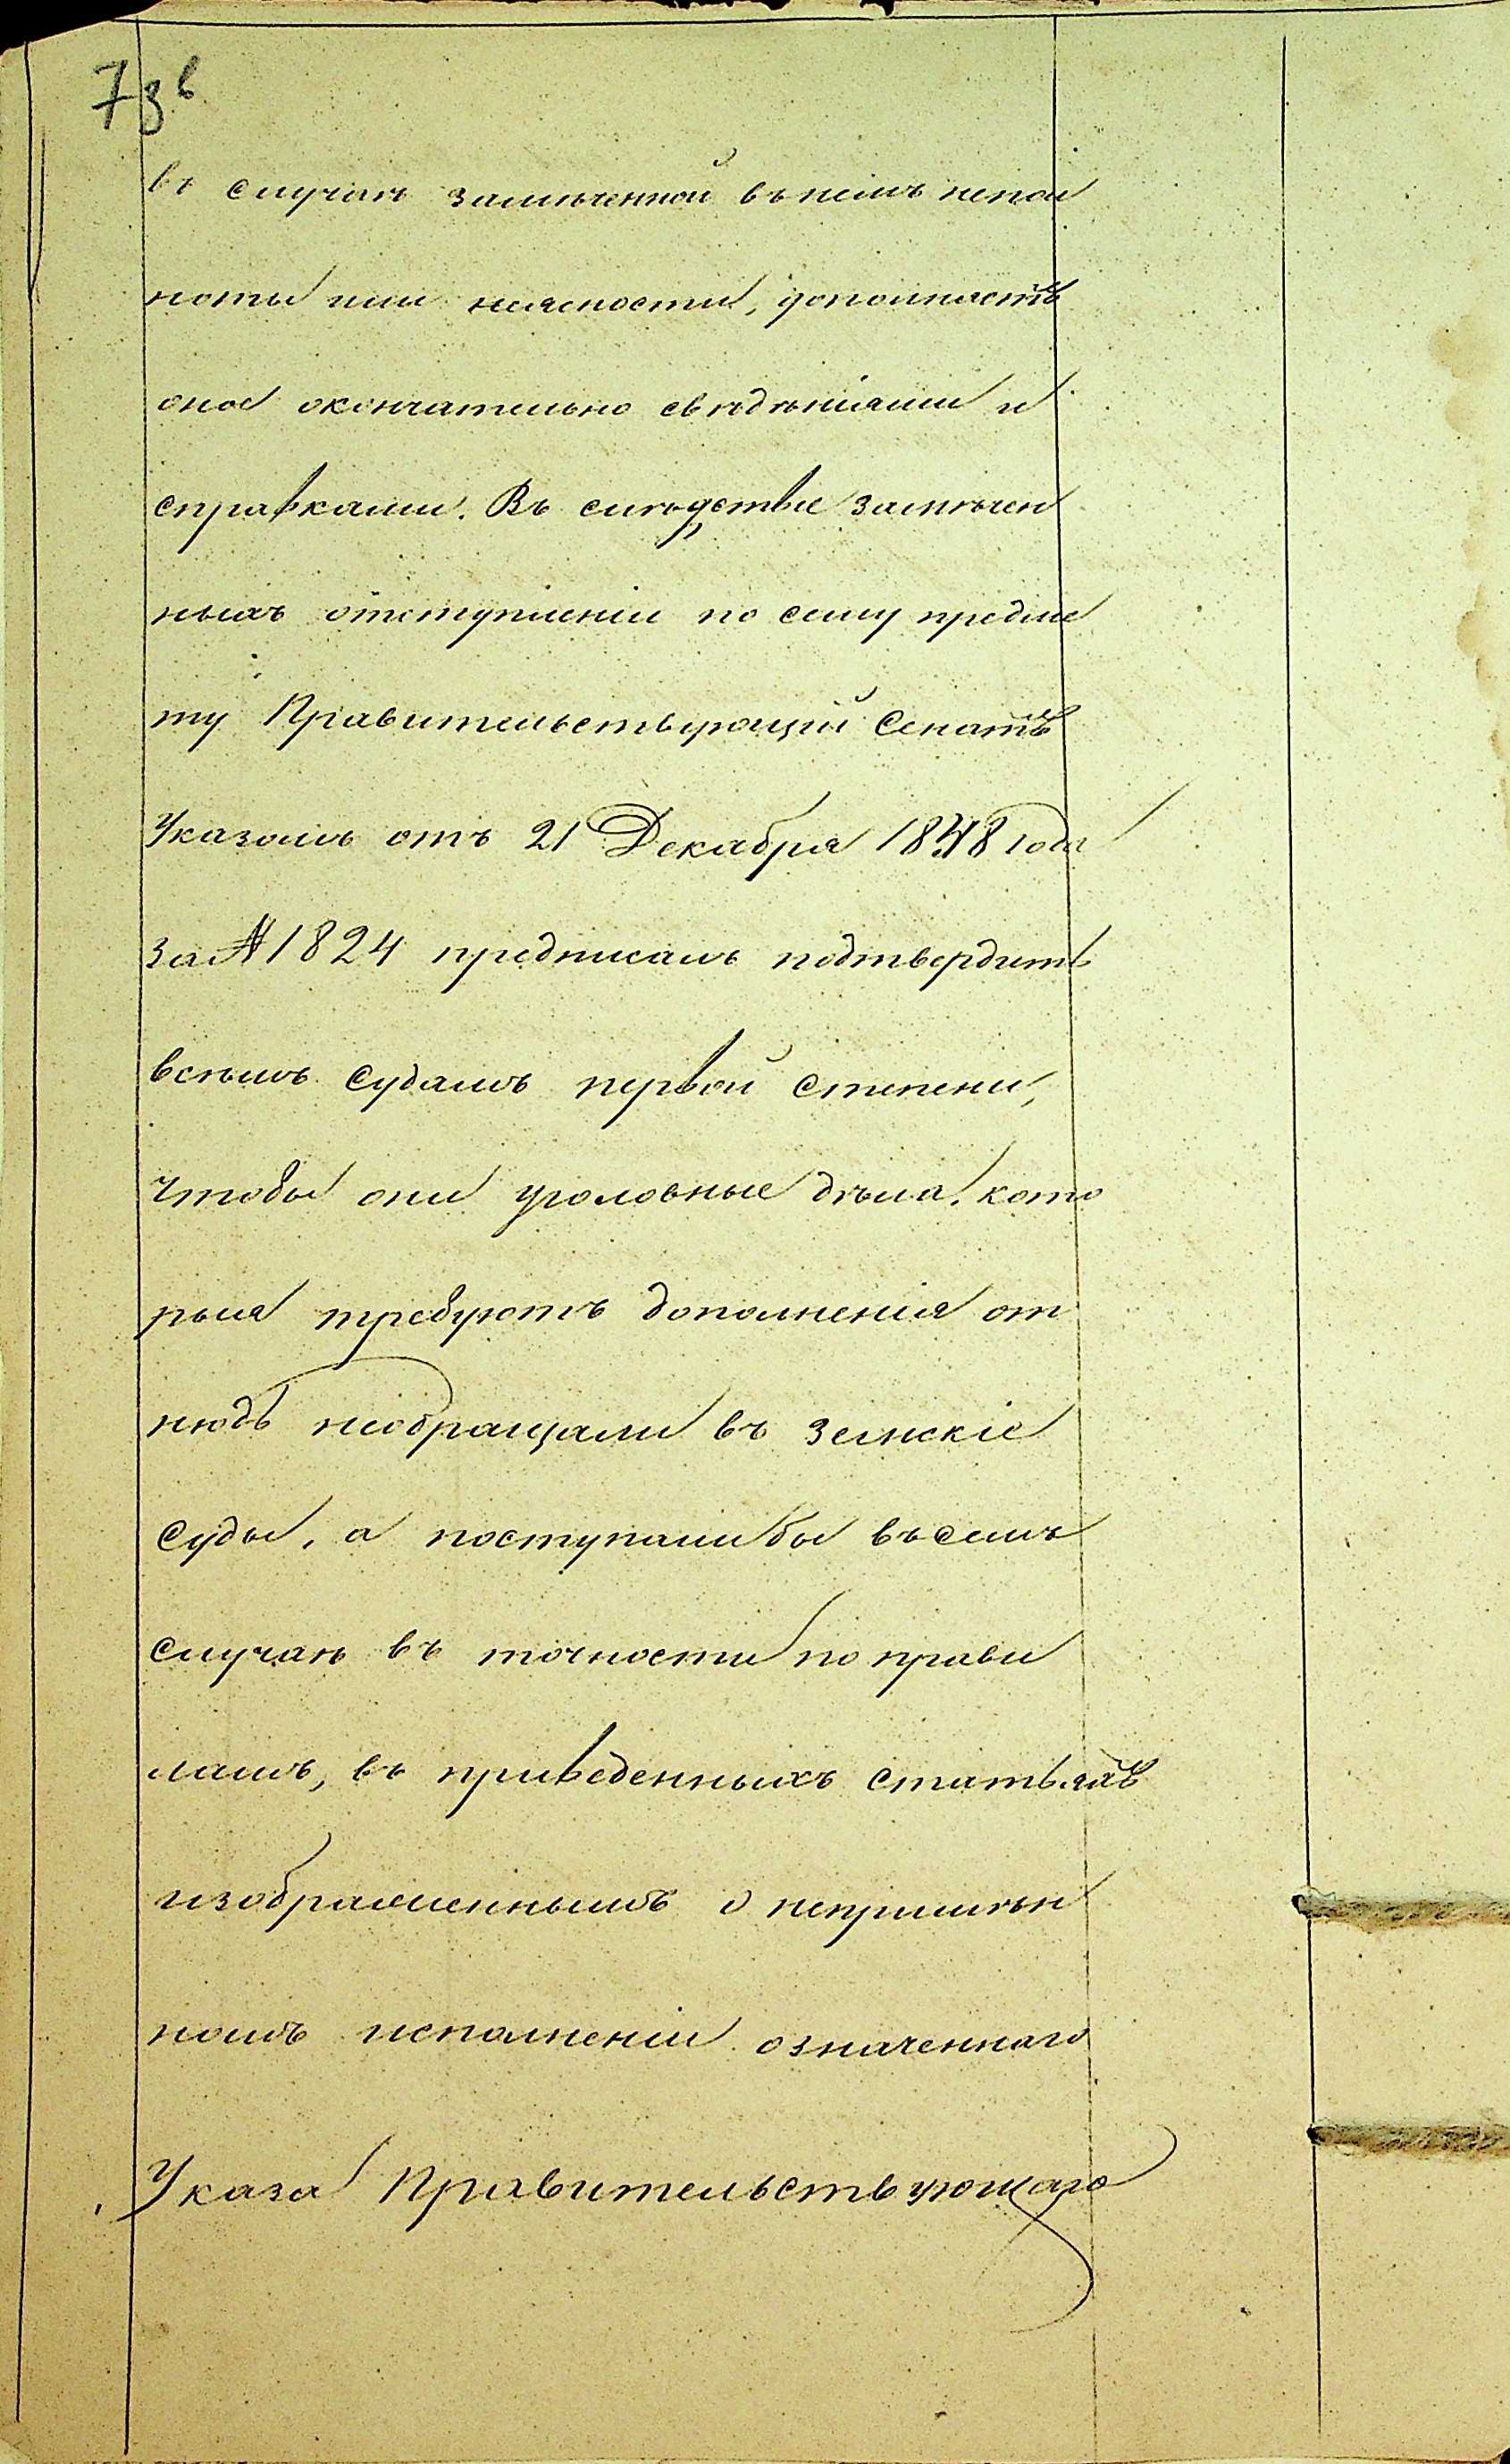 73 в
въ случаѣ замѣченной въ немъ непол
ноты или неясности, дополнястъ
оное окончательно свѣдѣніями и
справками. Въ слѣдствіе замѣчен
ныхъ отступленіи по сему предме
ту Правительствующій Сенатъ
Указомъ отъ 21 Декабря 1848 года
за № 1824 предписалъ подтвердить
всѣмъ судамъ первой степени,
чтобы они уголовные дѣла, кото
рыя требуютъ дополненія от
нюдь необращали въ земскіе
суды, а поступали бы въ семъ
случаѣ въ точности по прави
ламъ, въ приведенныхъ статьяхъ
изображеннымъ о непримѣн
номъ исполненіи означеннаго
Указа Правительствующаго